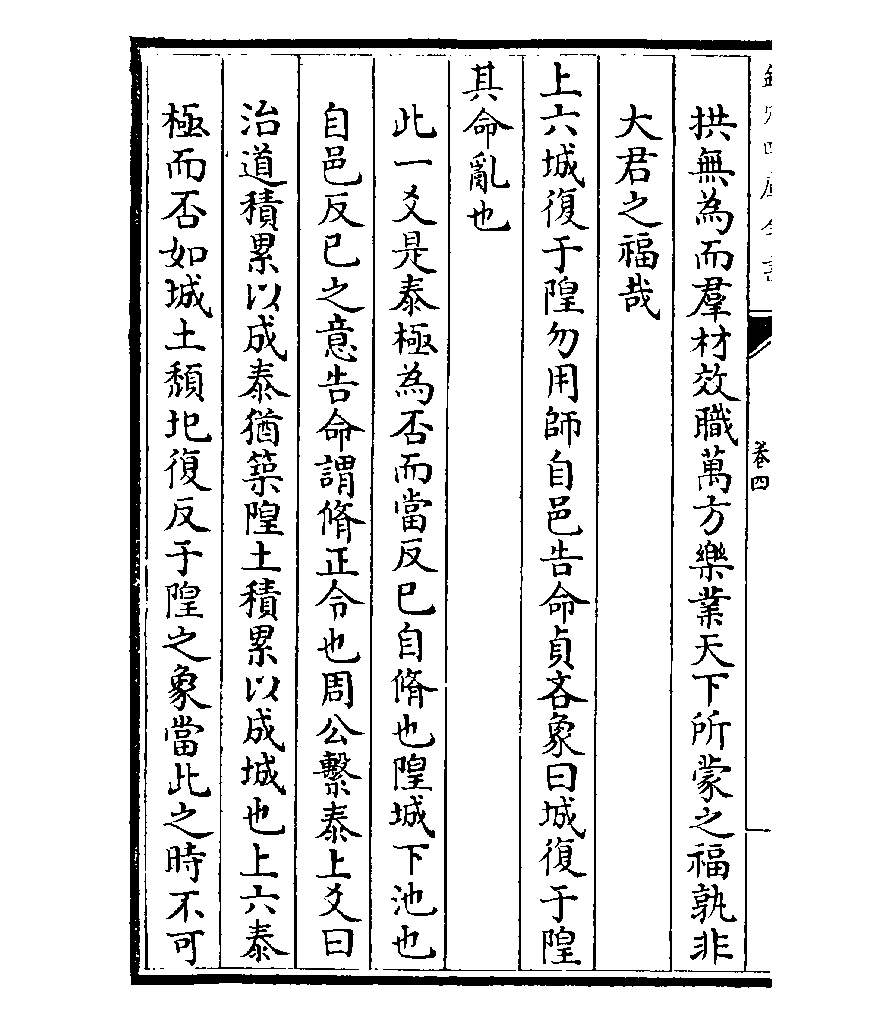 欽定四庫全書
卷四
拱無為而羣材效職萬方樂業天下所蒙之福孰非
大君之福哉
上六城復于隍勿用師自邑告命貞吝象曰城復于隍
其命亂也
此一爻是泰極為否而當反已自脩也隍城下池也
自邑反已之意告命謂脩正令也周公繫泰上爻曰
治道積累以成泰猶築隍土積累以成城也上六泰
極而否如城土頽圯復反于隍之象當此之時不可